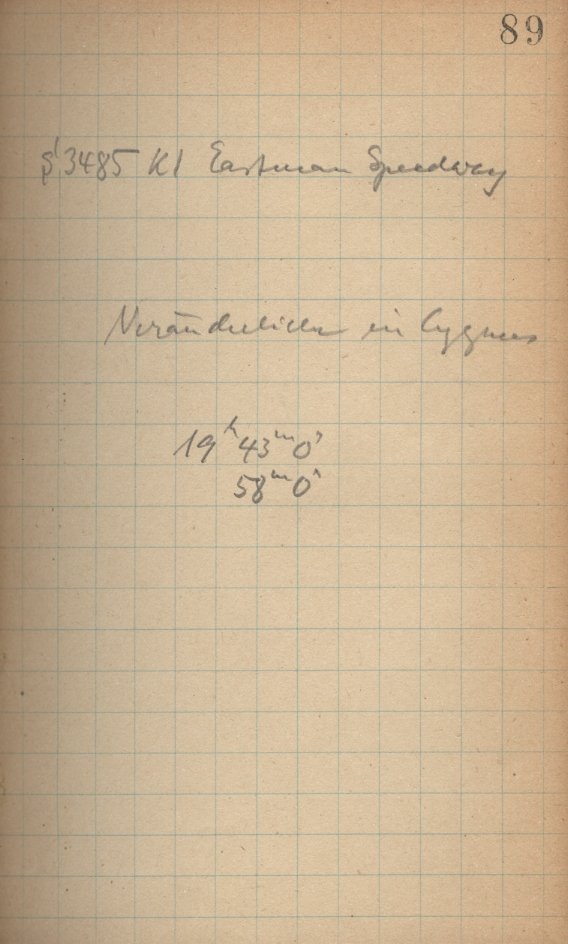 89
3485 Kl Eastman Speedway
Veränderlicher in Cygnus
19ʰ 43ᵐ 0ˢ
58ᵐ 0ˢ